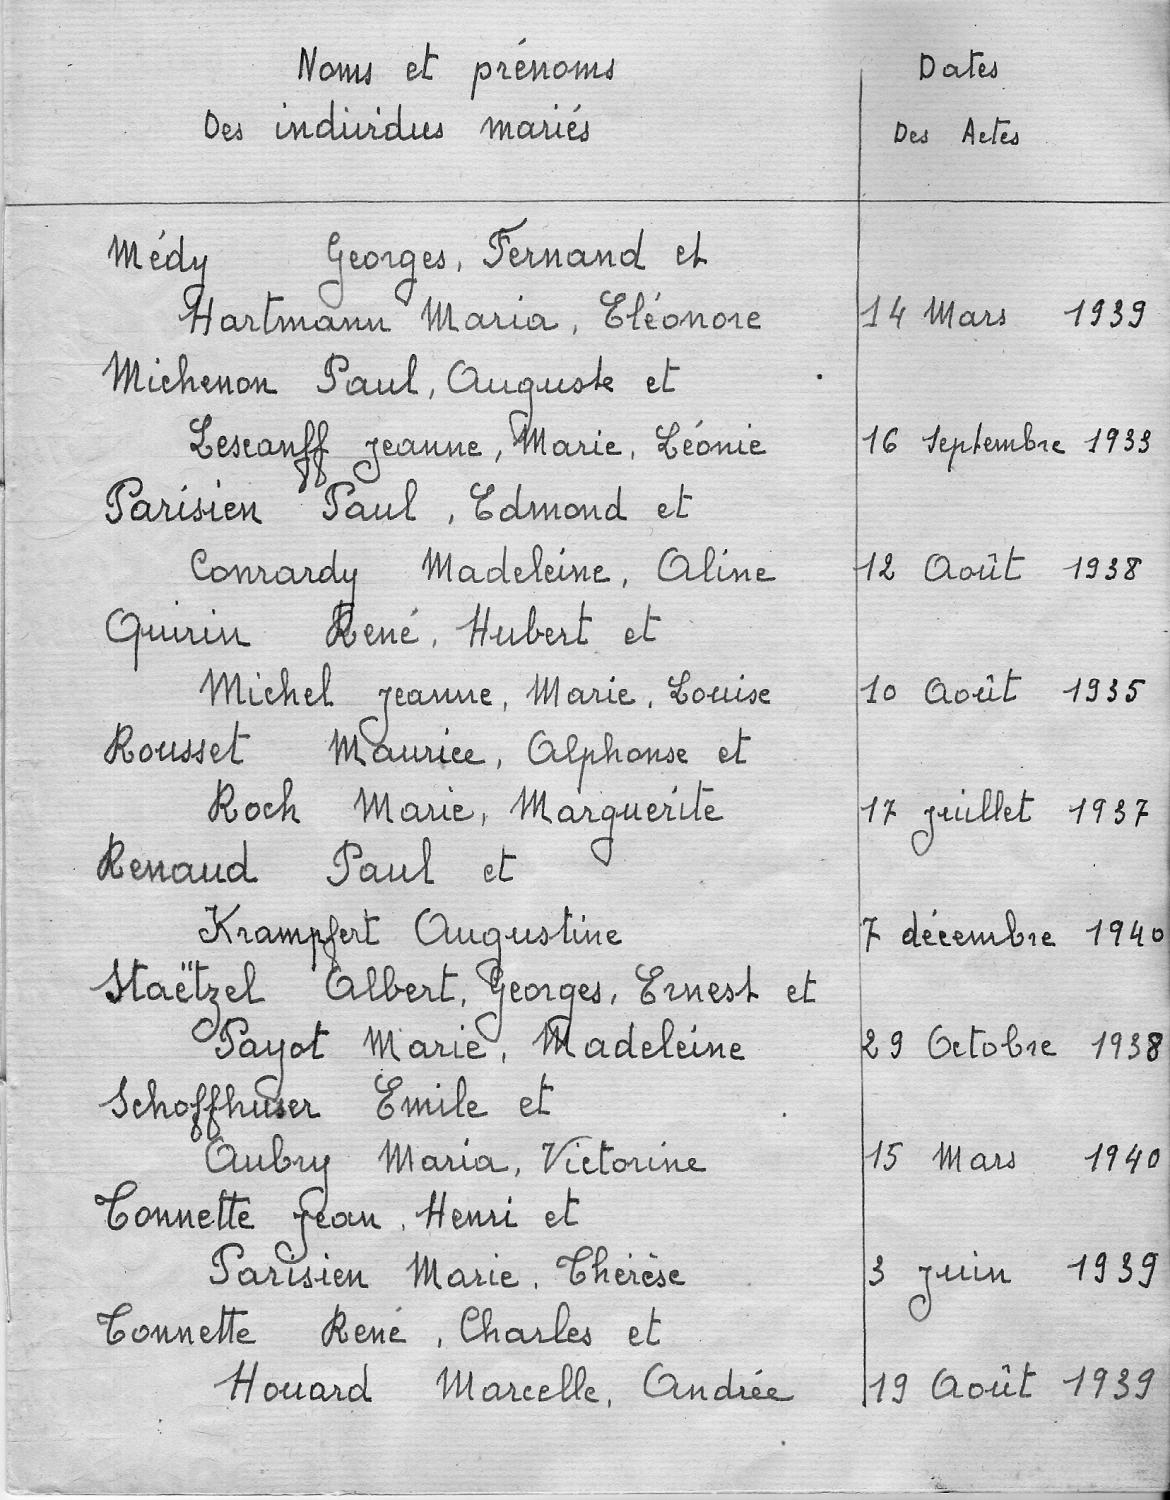 Noms et prénoms Dates
Des individus mariés Des Actes
Médy Georges, Fernand et
Hartmann Maria, Eléonore 14 Mars 1939
Michenon Paul, Auguste et
Lescanff jeanne, Marie, Léonie 16 Septembre 1933
Parisien Paul, Edmond et
Conrardy Madeleine, Aline 12 Août 1938
Quirin René, Hubert et
Michel jeanne, Marie, Louise 10 Août 1935
Rousset Maurice, Alphonse et
Roch Marie, Marguerite 17 juillet 1937
Renaud Paul et
Krampfert Augustine 7 décembre 1940
Staëtzel Albert, Georges, Ernest et
Payot Marie, Madeleine 29 Octobre 1938
Schoffhuser Emile et
Aubry Maria, Victorine 15 Mars 1940
Tonnette jean, Henri et
Parisien Marie, Thérèse 3 juin 1939
Tonnette René, Charles et
Houard Marcelle, Andrée 19 Août 1939